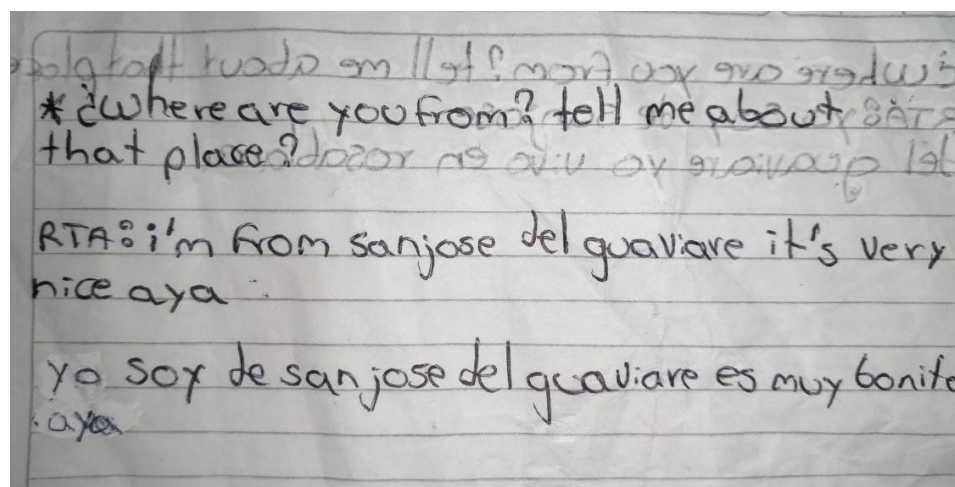 *¿Where are you from? tell me about
that place?
RTA: i'm from sanjose del guaviare it's very
nice aya
yo soy de sanjose del guaviare es muy bonito
aya